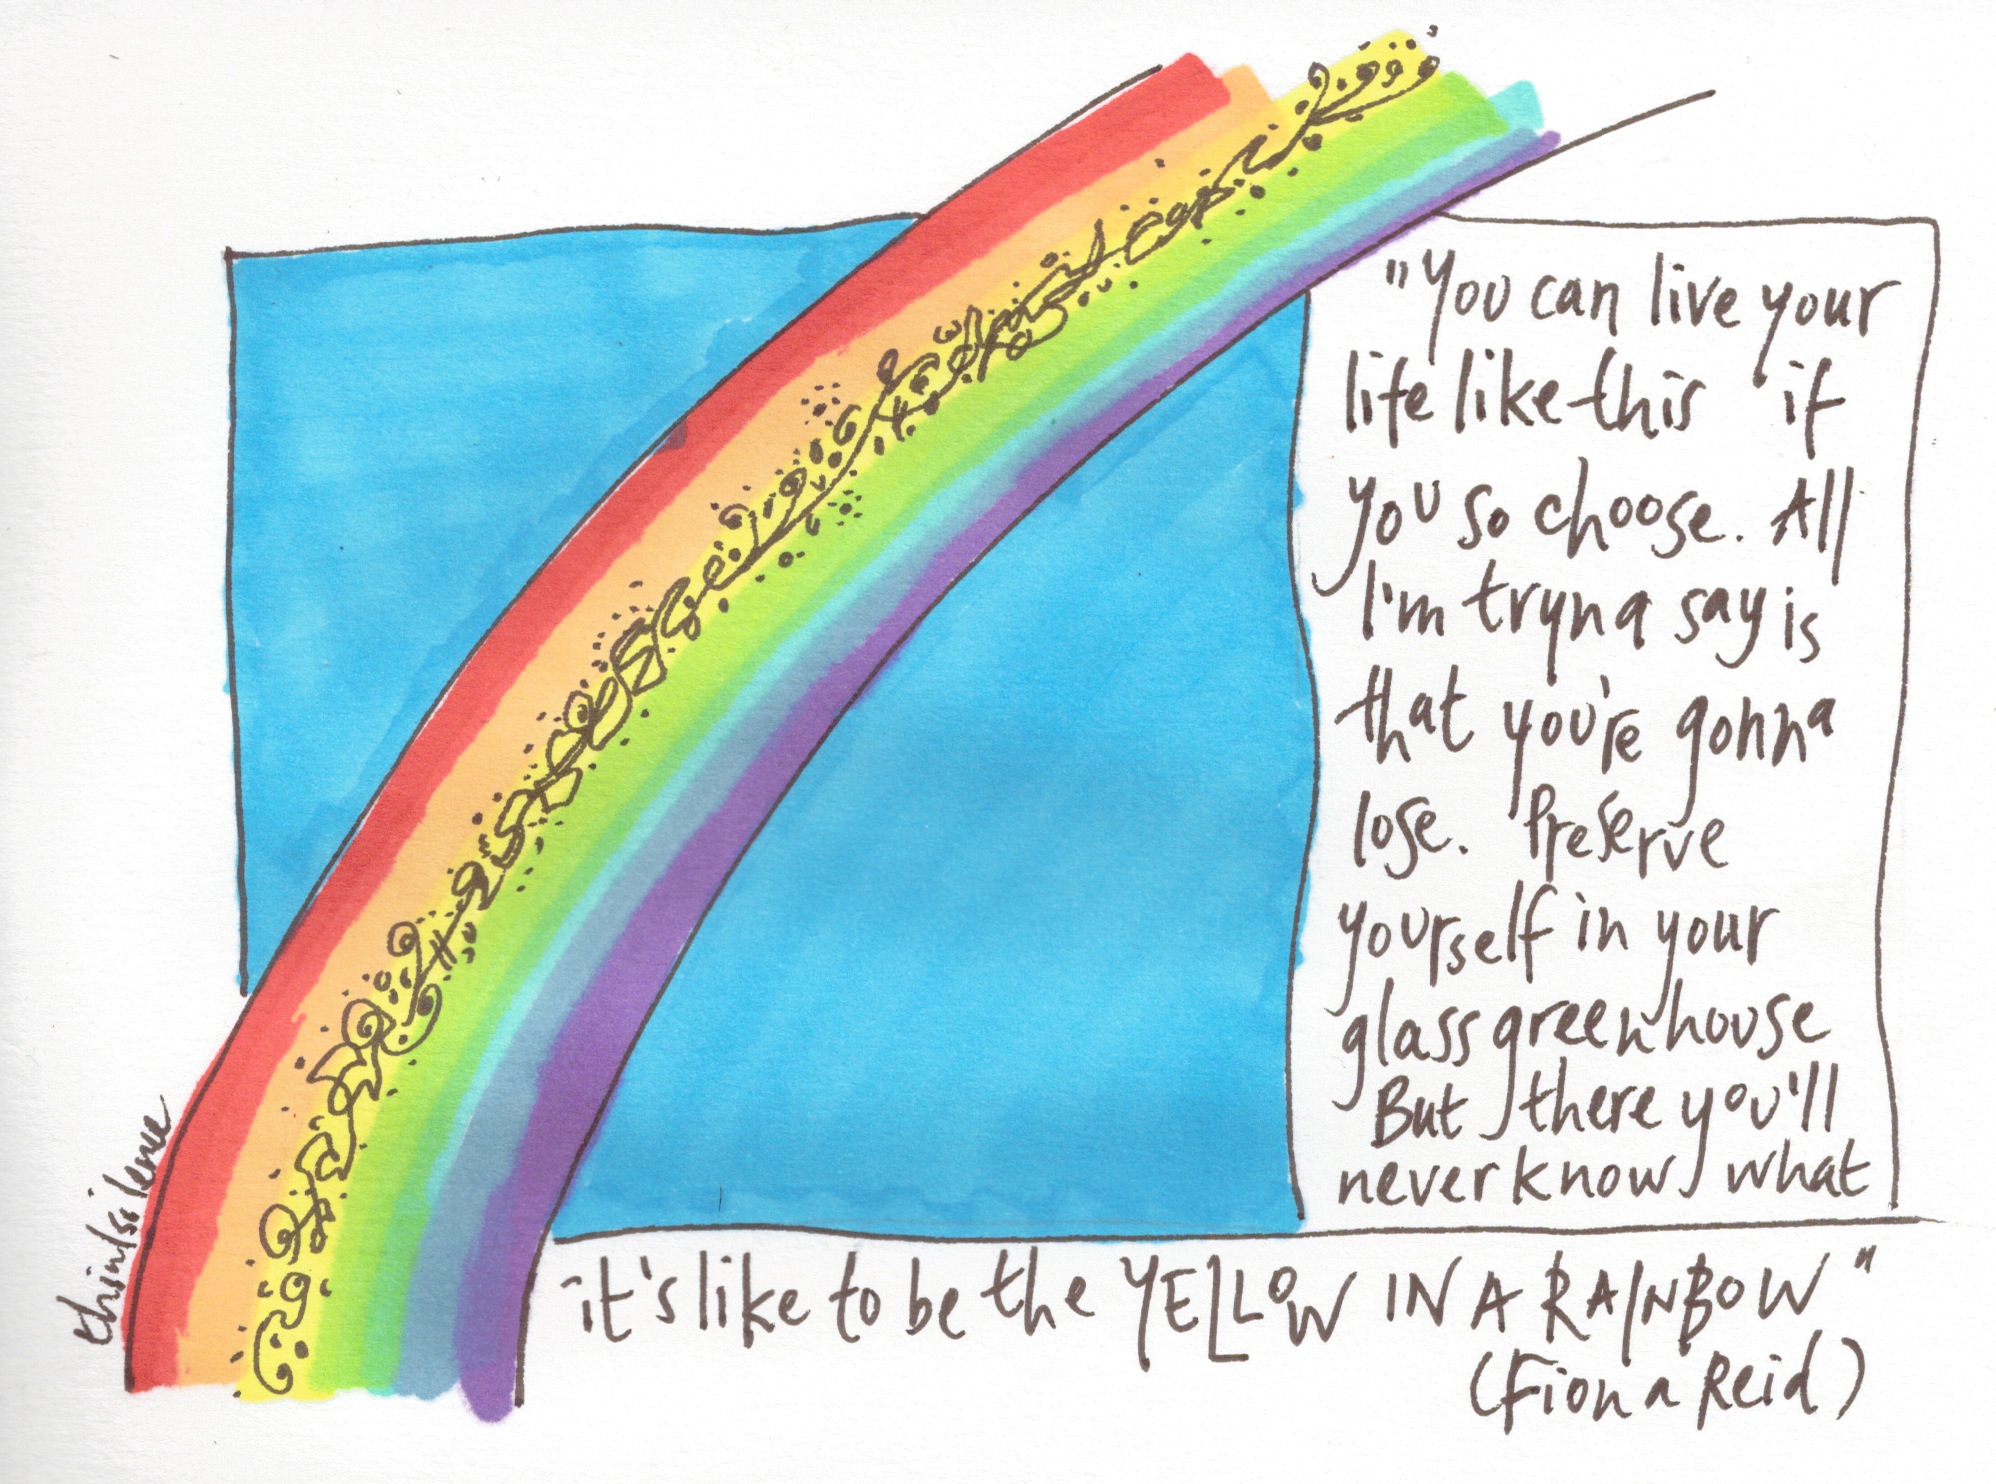 "You can live your
life like this if
you so choose. All
I'm tryna say is
that you're gonna
lose. Preserve
yourself in your
glass greenhouse
But there you'll
never know what
it's like to be the YELLOW IN A RAINBOW"
(Fiona Reid)